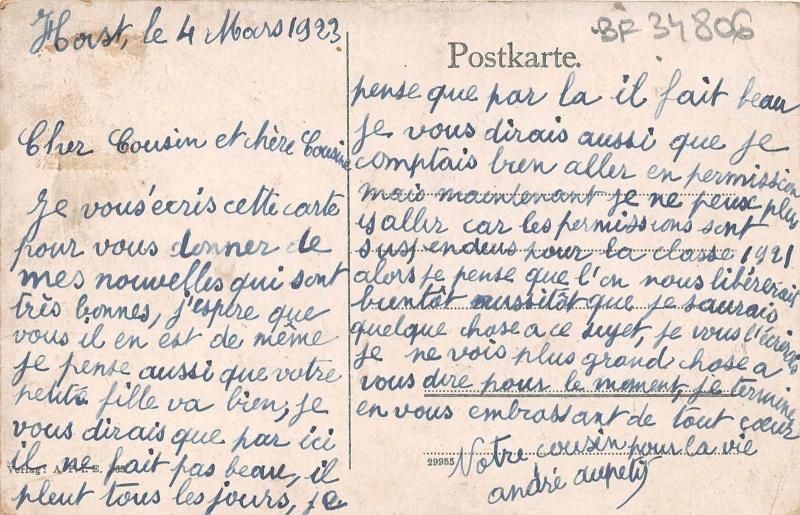 Horst, le 4 Mars 1923
BF 34806
Postkarte.
Cher Cousin et chère Cousine
Je vous écris cette carte
pour vous donner de
mes nouvelles qui sont
très bonnes, j'espire que
vous il en est de même
je pense aussi que votre
petite fille va bien, je
vous dirais que par ici
il ne fait pas beau, il
pleut tous les jours, je
pense que par la il fait beau
je vous dirais aussi que je
comptais bien aller en permission
mais maintenant je ne peux plus
y aller car les permissions sont
suspendus pour la classe 1921
alors je pense que l'on nous libérerait
bientôt aussitôt que je saurais
quelque chose a ce sujet, je vous l'écrirais
je ne vois plus grand chose a
vous dire pour le moment, je termine
en vous embrassant de tout coeur
Votre cousin pour la vie
andré aupetit
Verlag:
29955